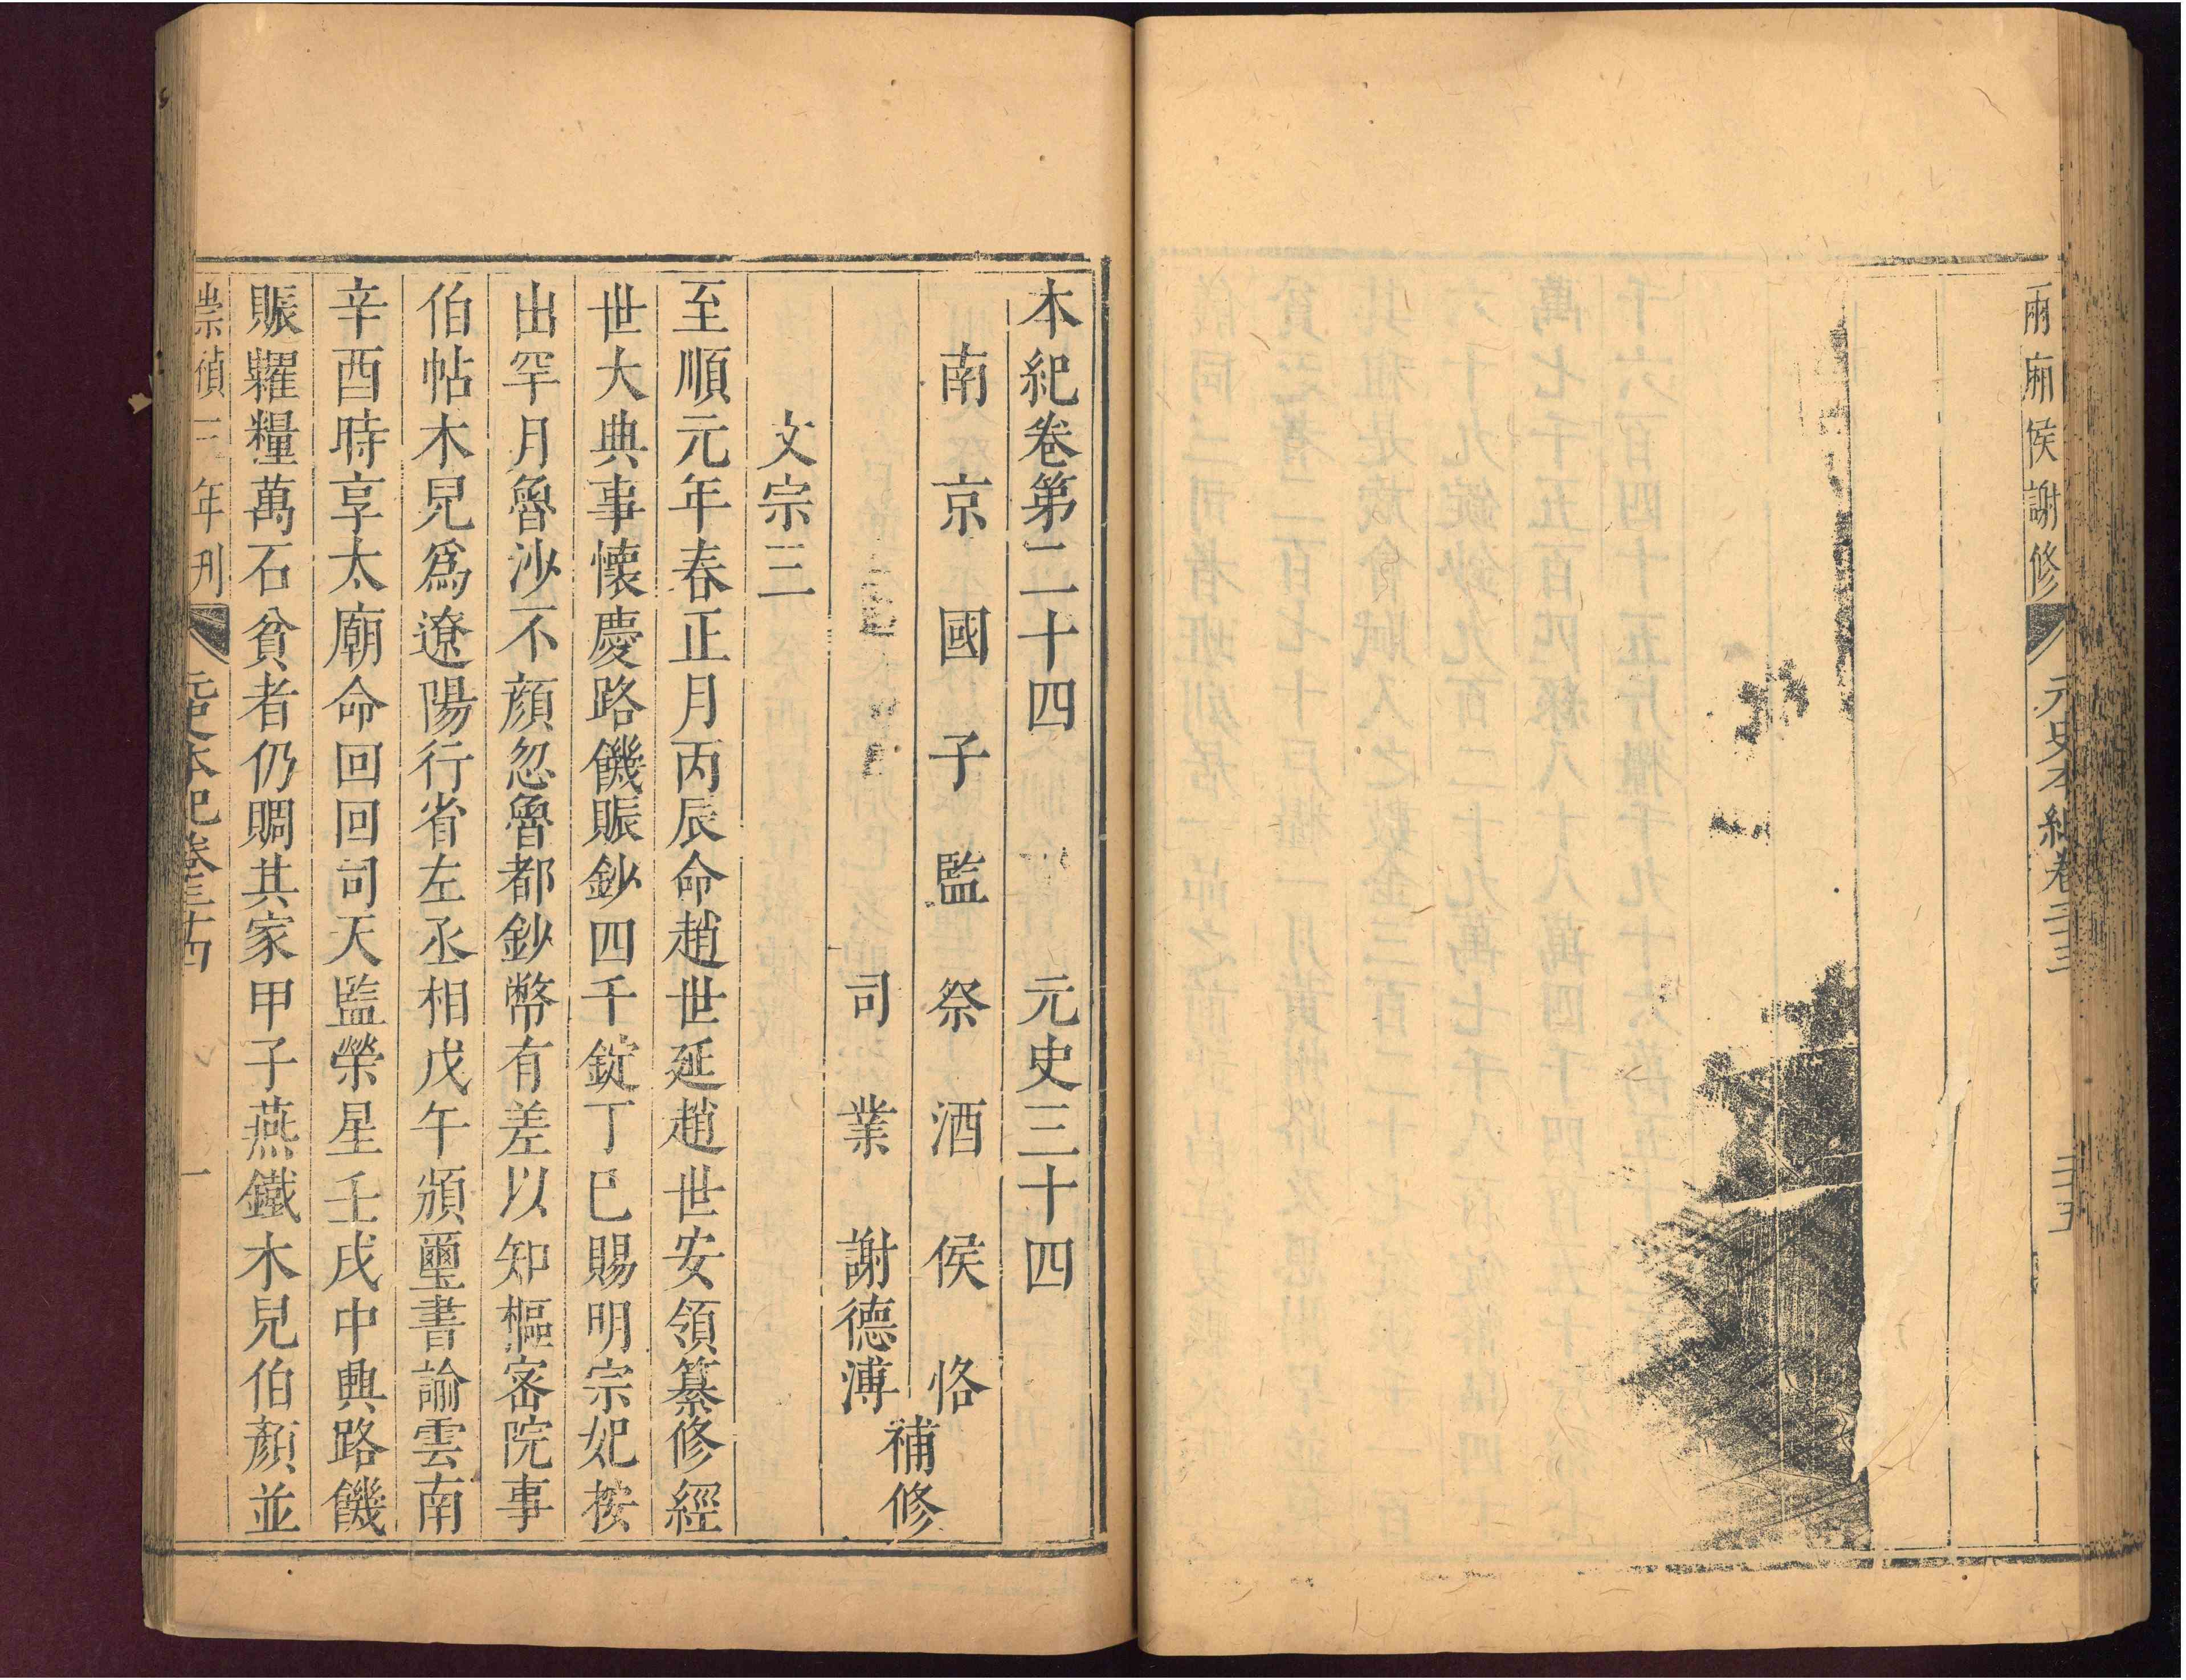 兩廂侯謝修 元史本紀卷三十三 三十五
本紀卷第二十四 元史三十四
南京國子監祭酒侯恪
司業謝德溥
補修
文宗三
至順元年春正月丙辰命趙世延趙世安領纂修經
世大典事懷慶路饑賑鈔四千錠丁巳賜明宗妃按
出罕月魯沙不顏忽魯都鈔幣有差以知樞密院事
伯帖木兒爲遼陽行省左丞相戊午頒璽書諭雲南
辛酉時享太廟命回回司天監榮星壬戌中興路饑
賑糶糧萬石貧者仍賙其家甲子燕鐵木兒伯顏並
崇禎三年刊 元史本紀卷三十四 一